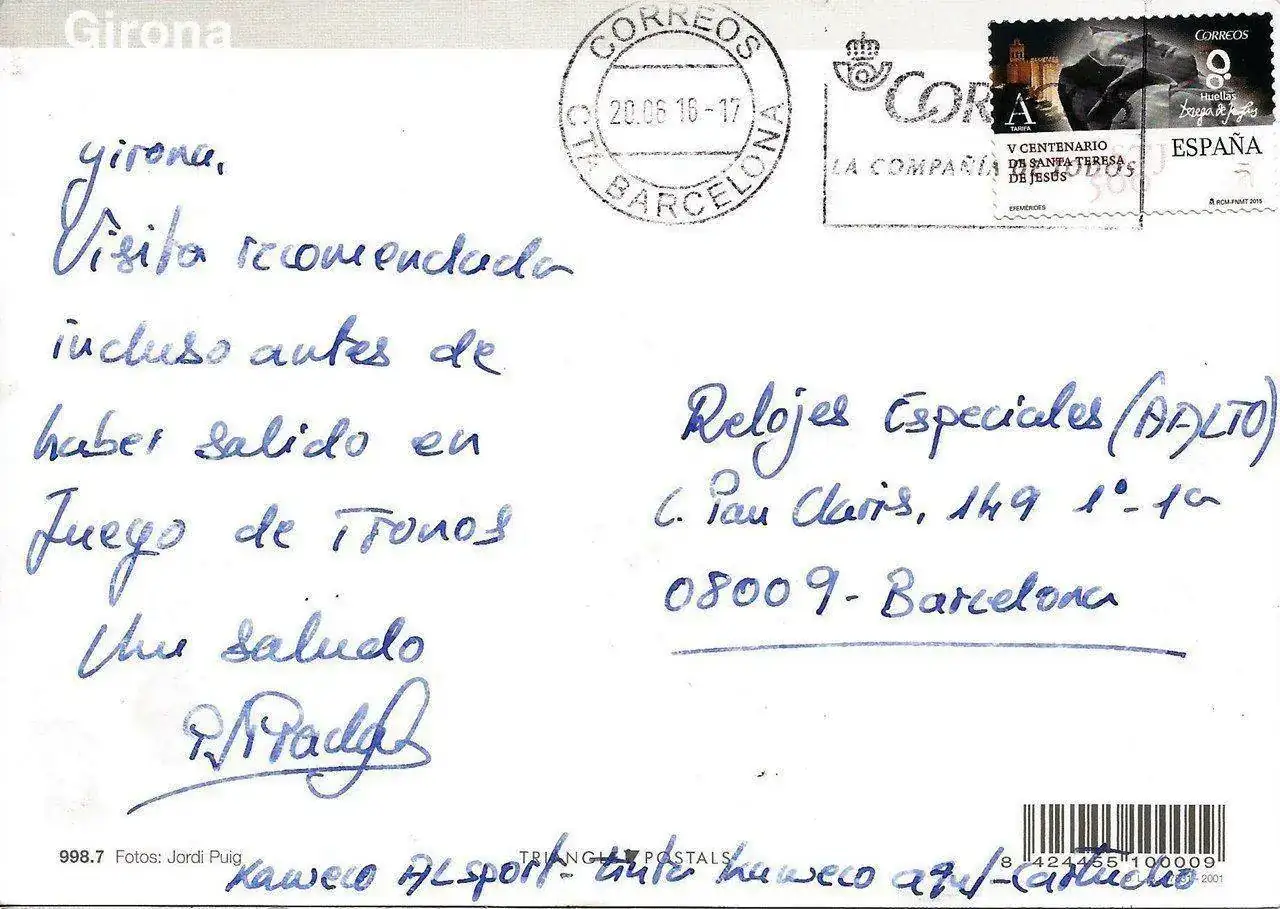 Girona
CORREOS
20.06 16-17
CTA BARCELONA
COR
LA COMPAÑÍA DE TODOS
CORREOS
Huellas
Teresa de Jesús
A
TARIFA
V CENTENARIO
DE SANTA TERESA
DE JESÚS
ESPAÑA
EFEMÉRIDES
RCM-FNMT 2015
Girona,
Visita recomendada
incluso antes de
haber salido en
Juego de Tronos
Un saludo
Relojes Especiales (AALTO)
C. Pau Claris, 149 1º-1ª
08009 - Barcelona
998.7 Fotos: Jordi Puig
TRIANGLE POSTALS
8 424455 100009
Kaweco ALsport - tinta Kaweco azul - cartucho